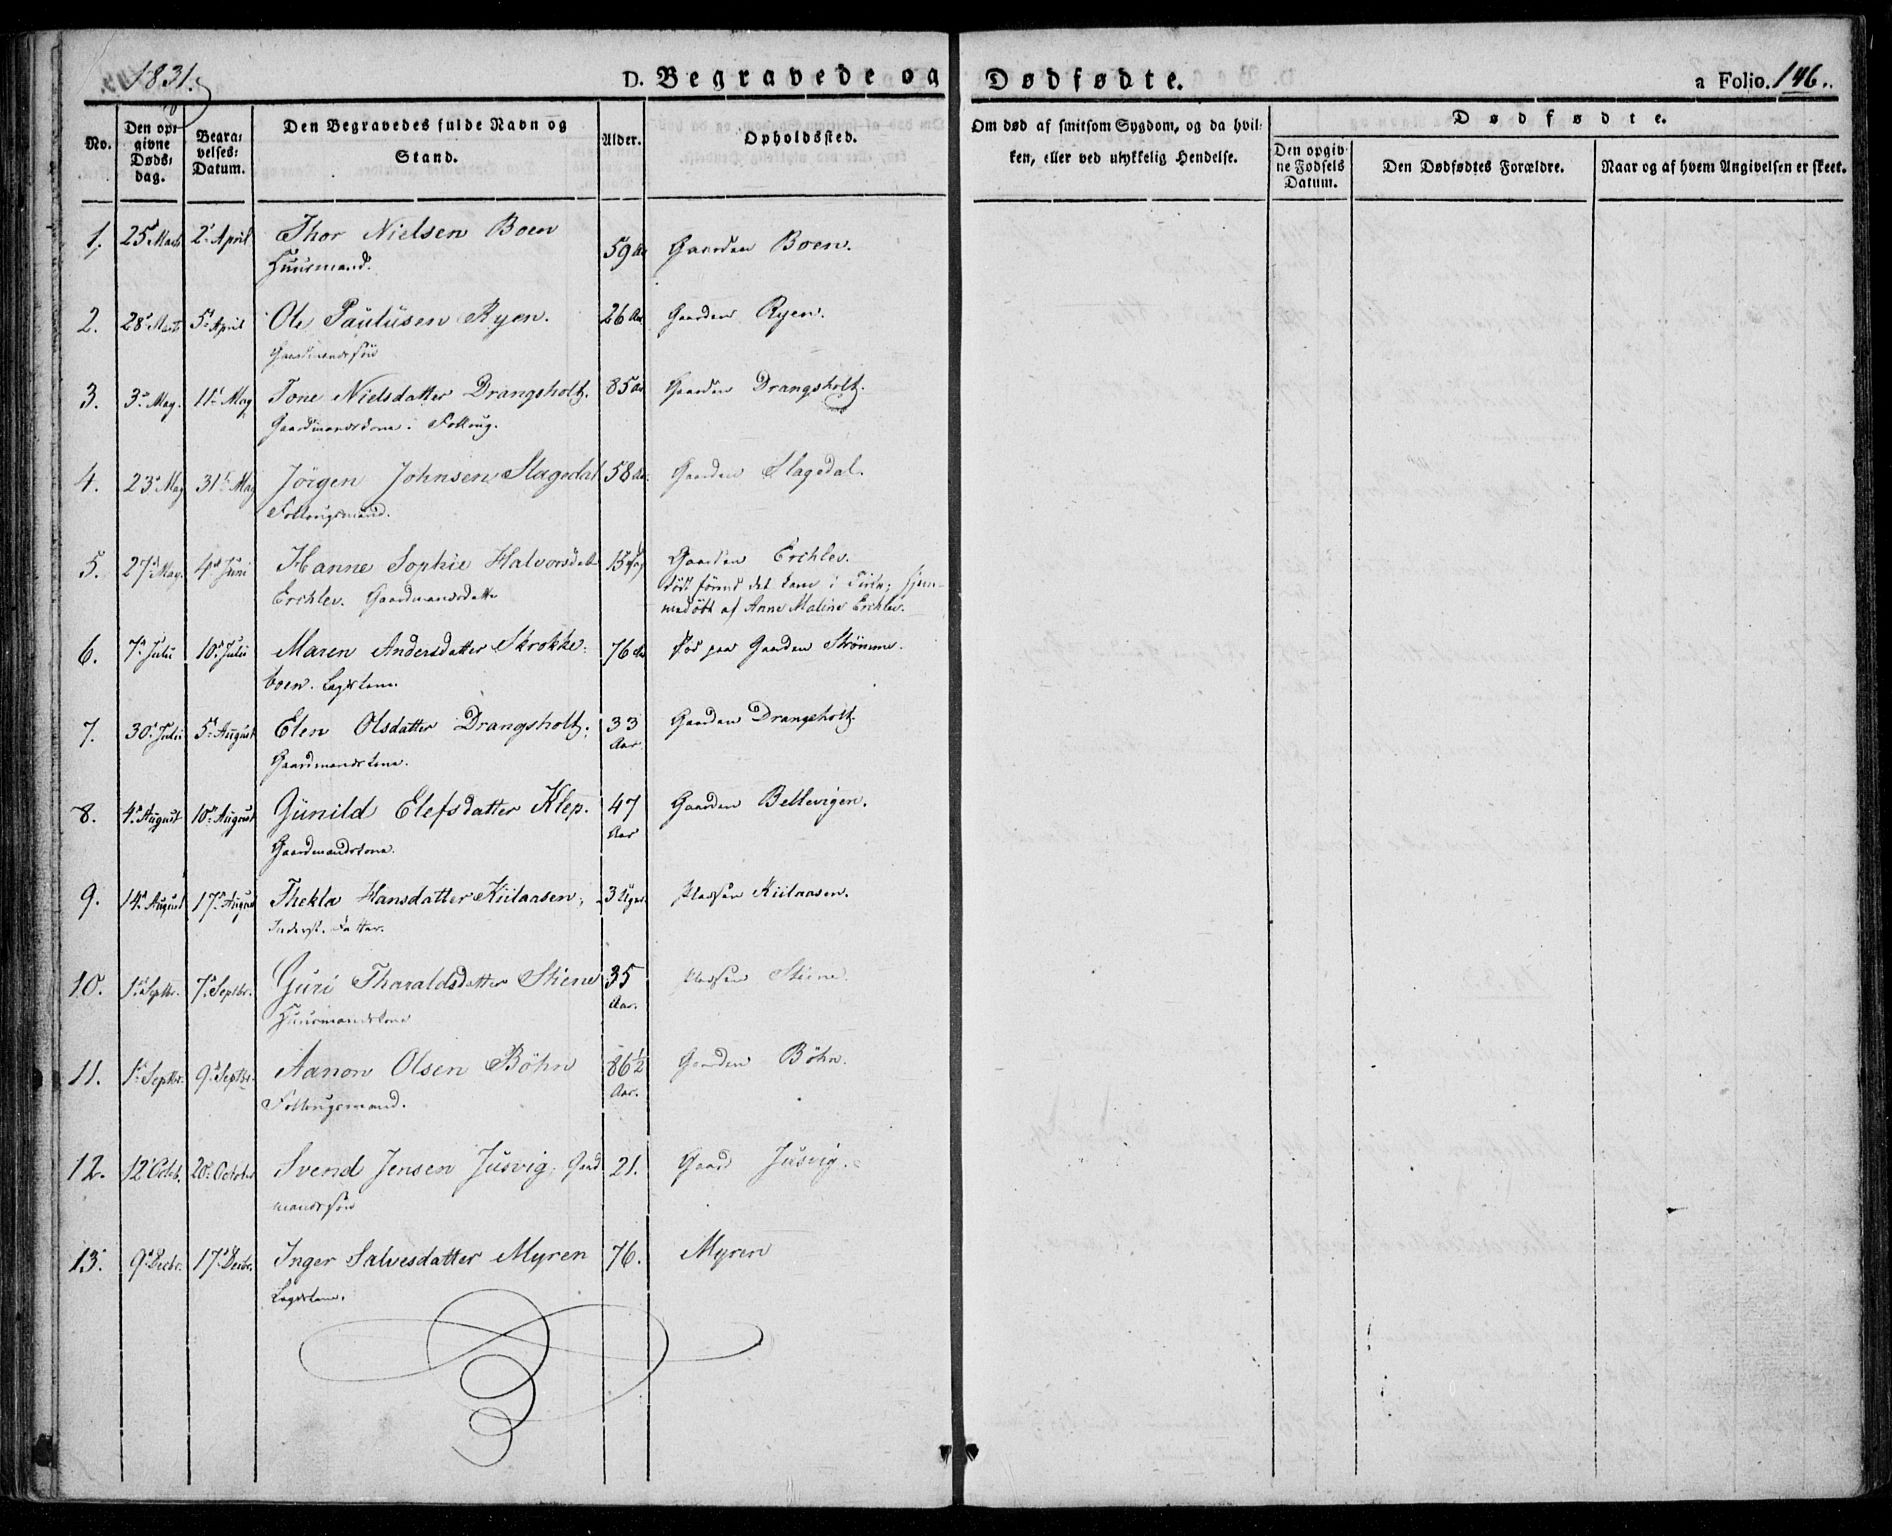 1831.
D. Begravede og Dødfødte. a Folio. 146.
No. Den opgivne Døds-dag. Begravelses-Datum. Den Begravedes fulde Navn og Stand. Alder. Opholdssted. Om død af smitsom Sygdom, og da hvilken, eller ved ulykkelig Hendelse. Dødfødte.
Den opgivne Fødsels Datum. Den Dødfødtes Forældre. Naar og af hvem Angivelsen er skeet.
1, 25 Marts 2 April Thor Nielsen Boen 59 Aar Gaarden Boen.
Huusmand.
2. 28 Marts 5 April Ole Paulusen Ryen. 26 Aar Gaarden Ryen.
Gaardmandssøn
3. 3 May. 11 May Tone Nielsdatter Drangsholt. 85 Aar Gaarden Drangsholt.
Gaardmandskone. Follaug.
4. 23 May 31 May Jörgen Johnsen Slagedal 58 Aar. Gaarden Slagedal.
Follaugsmand.
5. 27 May. 4 Juni Hanne Sophie Halvorsdatter 15 Gaarden Erchlev.
Erchlev. Gaardmandsdatter
død førend det kom i Kirke; hjem-
medöbt af Anne Maline Erchlev.
6. 7 Julii 10 Julii Maren Andersdatter Skrokke- 76 Aar død paa Gaarden Strömme.
boen. Lægdskone.
7. 30 Julii 5 August Elen Olsdatter Drangsholt. 33 Aar. Gaarden Drangsholt.
Gaardmandskone.
8. 4 August 10 August Gunild Elefsdatter Klep. 47 Aar Gaarden Bellevigen.
Gaardmandskone.
9. 14 August 17 August Thekla Hansdatter Kiilaasen, 3 Uger. Pladsen Kiilaasen.
Inderst. Datter.
10. 1 Septbr. 7 Septbr. Guri Tharaldsdatter Stiene 35 Aar. Pladsen Stiene
Huusmandskone
11. 1 Septbr. 9 Septbr. Aanon Olsen Böhn 86 1/2 Aar. Gaarden Böhn.
Follaugsmand.
12. 12 Octob. 20 October Svend Jensen Jusvig, Gaard- 21. Gaard Jusvig.
mandssøn
13. 9 Decbr. 17 Decbr. Inger Salvesdatter Myren 76. Myren
Lægdskone.